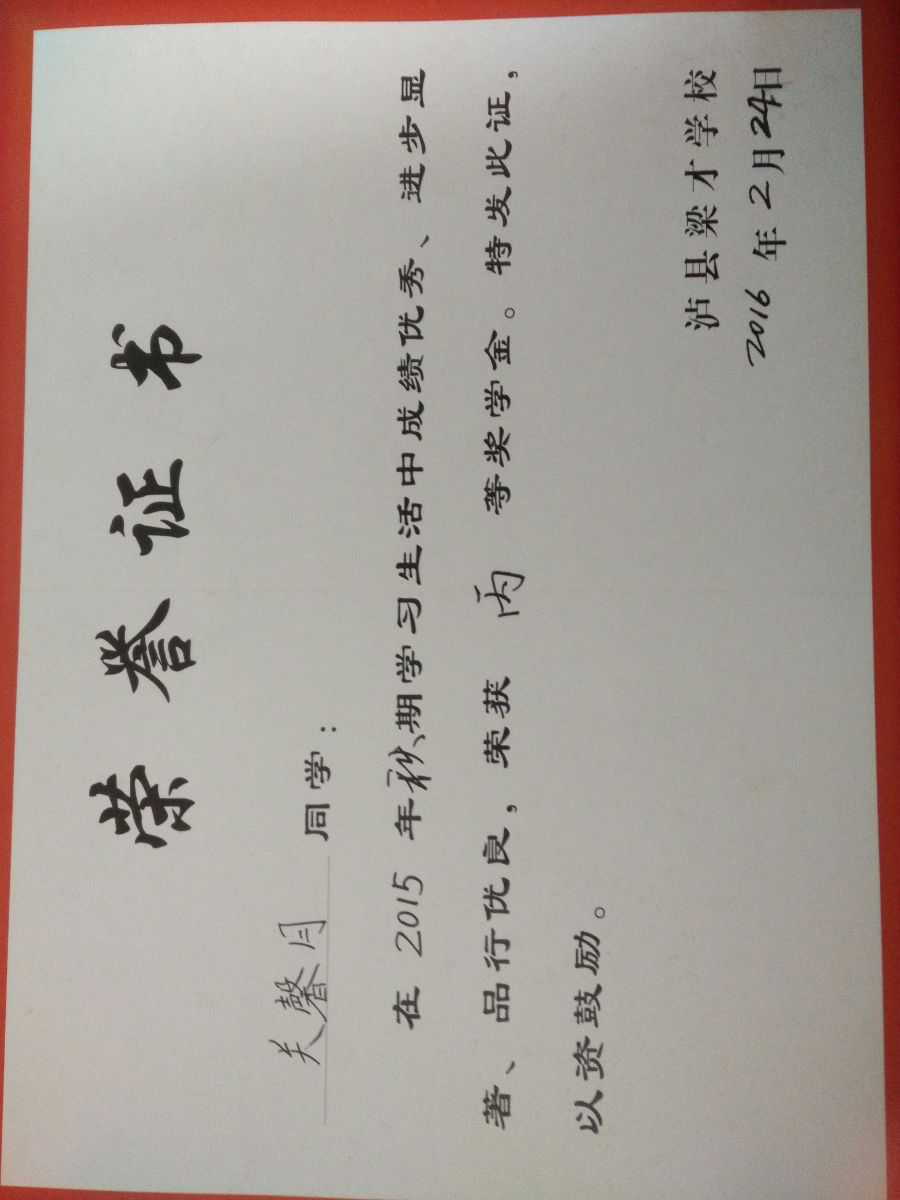 荣誉证书
关馨月 同学：
在 2015 年秋期学习生活中成绩优秀、进步显
著、品行优良，荣获 丙 等奖学金。特发此证，
以资鼓励。
泸县梁才学校
2016 年 2 月 24日